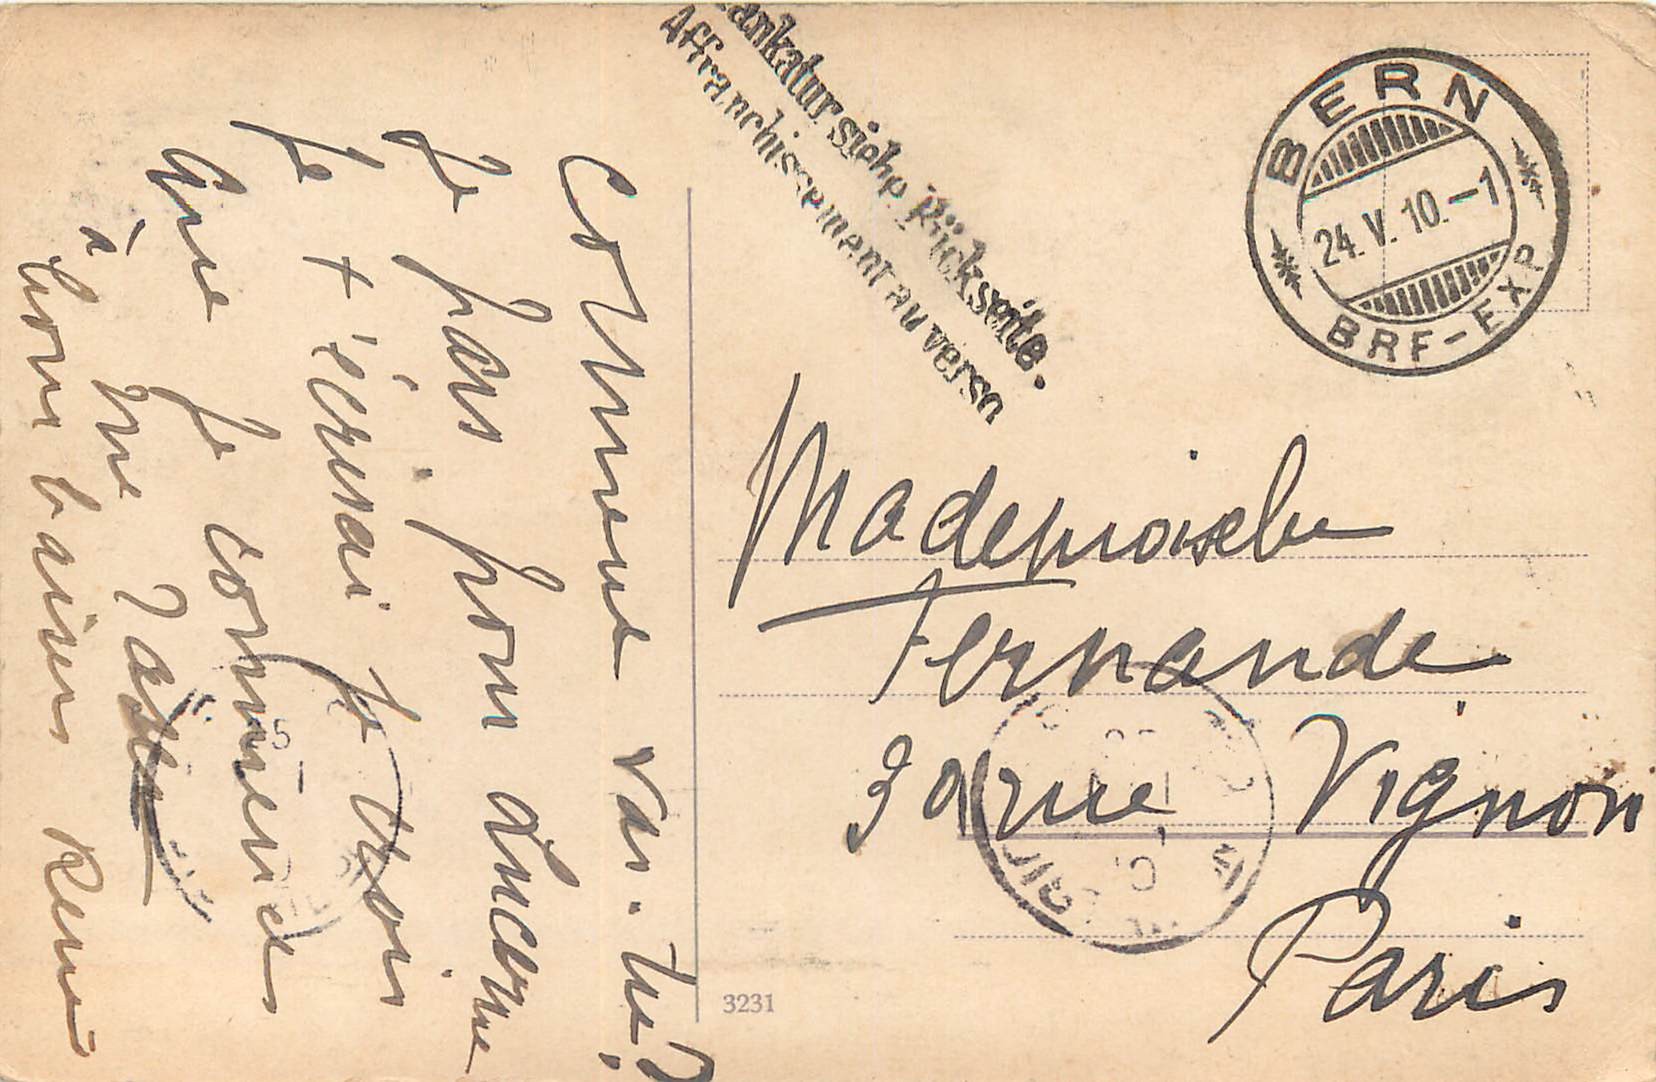 ankatur siehe Rückseite.
Affranchissement au verso
BERN
24. V. 10.-1
BRF-EXP.
Comment vas-tu?
Je pars pour Lucerne
Je t'écrirai ce soir
Que je commence
à me
bons baisers René
Mademoiselle
Fernande
30 rue Vignon
Paris
3231